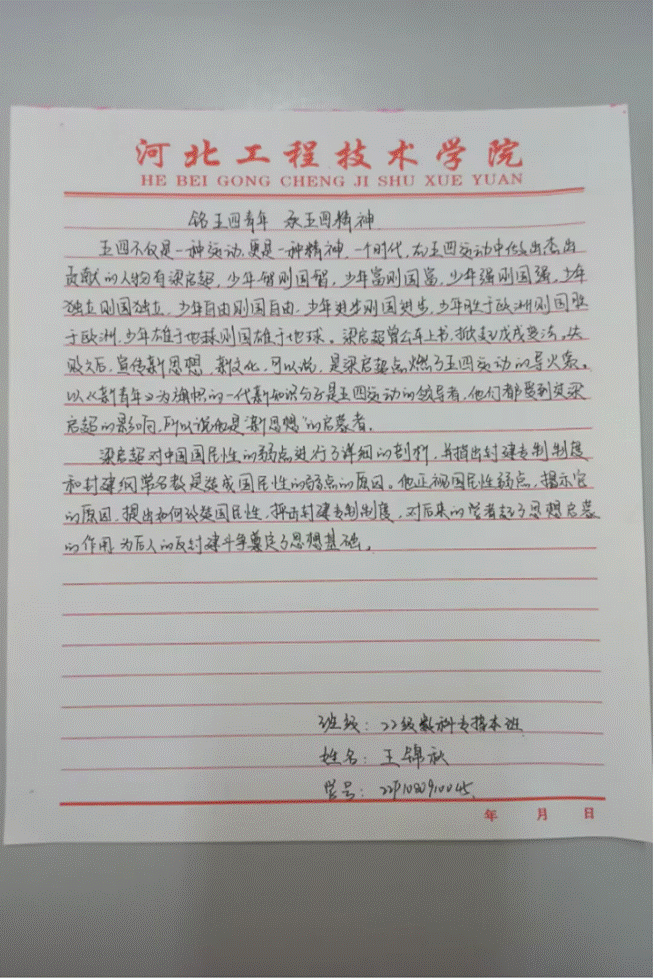 河北工程技术学院
HE BEI GONG CHENG JI SHU XUE YUAN
铭五四青年 承五四精神
五四不仅是一种运动,更是一种精神,一个时代,在五四运动中做出杰出
贡献的人物有梁启超,少年智则国智,少年富则国富,少年强则国强,少年
独立则国独立,少年自由则国自由,少年进步则国进步,少年胜于欧洲则国胜
于欧洲,少年雄于地球则国雄于地球。梁启超曾公车上书,掀起戊戌变法。失
败之后,宣传新思想,新文化,可以说,是梁启超点燃了五四运动的导火索。
以《新青年》为旗帜的一代新知识分子是五四运动的领导者,他们都受到梁
启超的影响,所以说他是“新思想”的启蒙者。
梁启超对中国国民性的弱点进行了详细的剖析,并指出封建专制制度
和封建纲常名教是造成国民性的弱点的原因。他正视国民性弱点,揭示它
的原因,提出如何改造国民性,抨击封建专制制度,对后来的学者起了思想启蒙
的作用,为后人的反封建斗争奠定了思想基础。
班级:22级数科专接本班
姓名:王锦秋
学号:22P1080910045
年 月 日